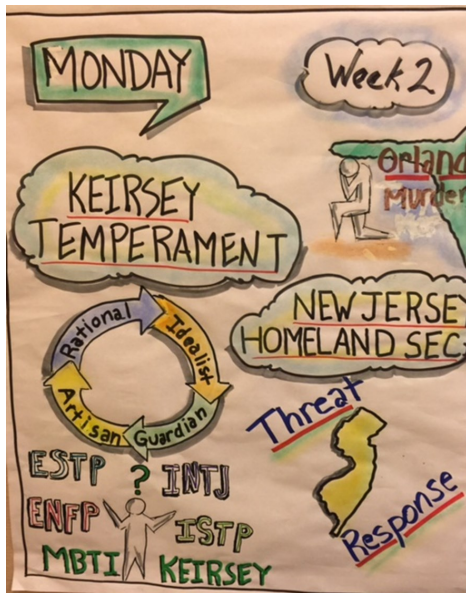 MONDAY
Week 2
Orland
Murder
KEIRSEY
TEMPERAMENT
NEW JERSEY
HOMELAND SEC
Rational
Idealist
Guardian
Artisan
Threat
Response
ESTP
?
INTJ
ENFP
ISTP
MBTI
KEIRSEY